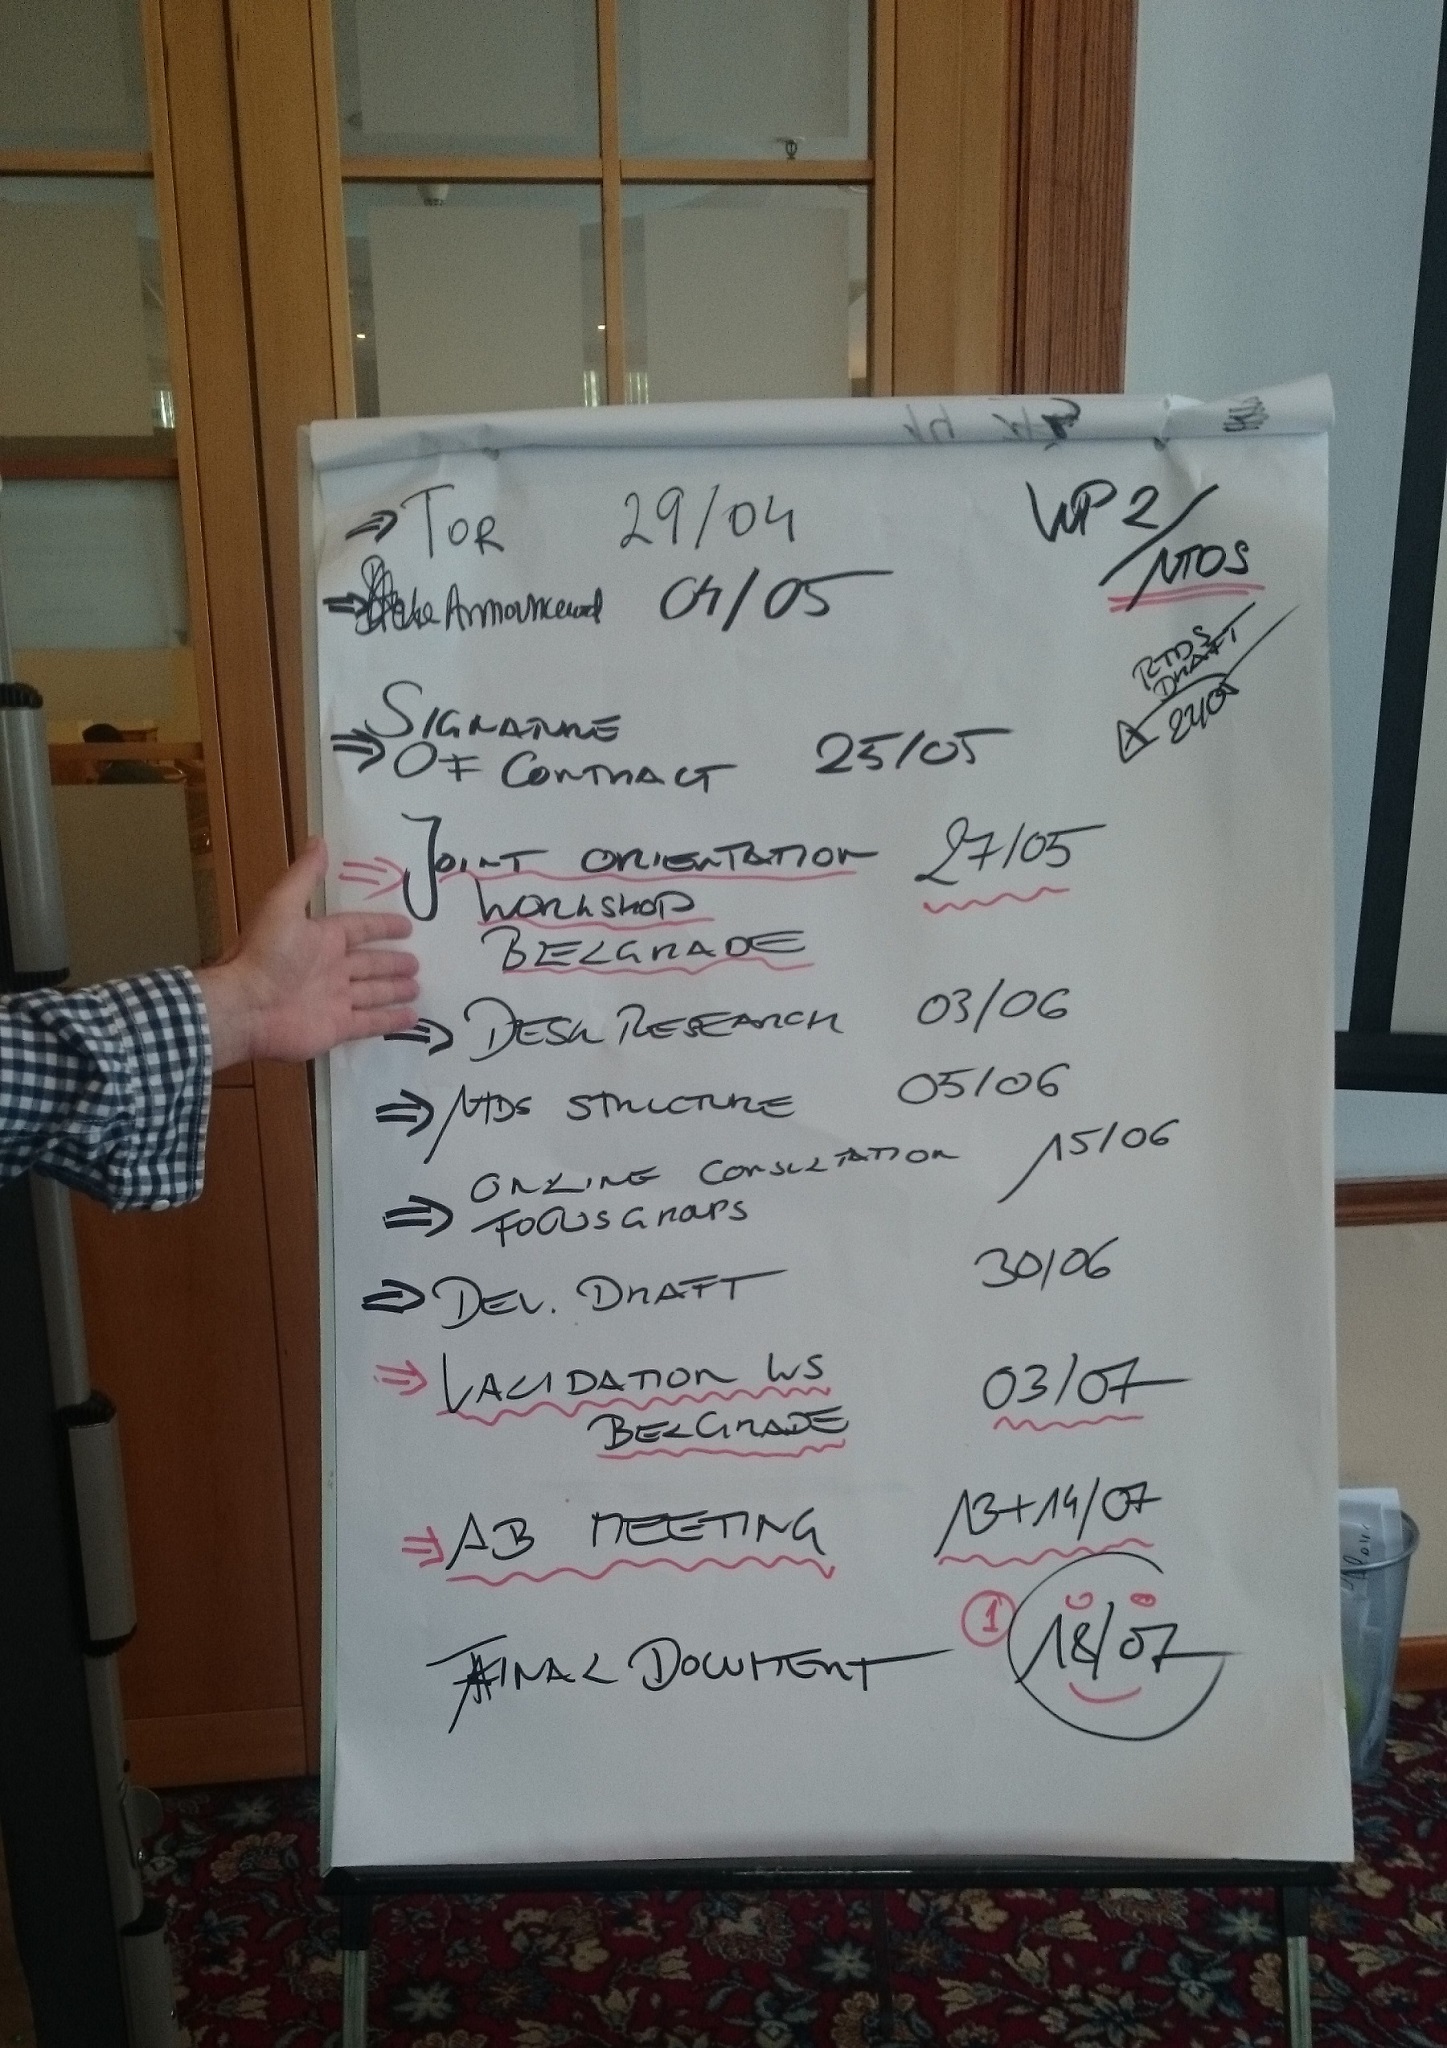 ⇒ TOR 29/04
WP 2/
NTDS
⇒ Announced 04/05
RTDS
DRAFT
⇒ SIGNATURE
OF CONTRACT 25/05
⇒ JOINT ORIENTATION 27/05
WORKSHOP
BELGRADE
⇒ DESK RESEARCH 03/06
⇒ NTDS STRUCTURE 05/06
⇒ ONLINE CONSULTATION 15/06
FOCUS GROUPS
⇒ DEV. DRAFT 30/06
⇒ VALIDATION WS 03/07
BELGRADE
⇒ AB MEETING 13+14/07
FINAL DOCUMENT 1 18/07